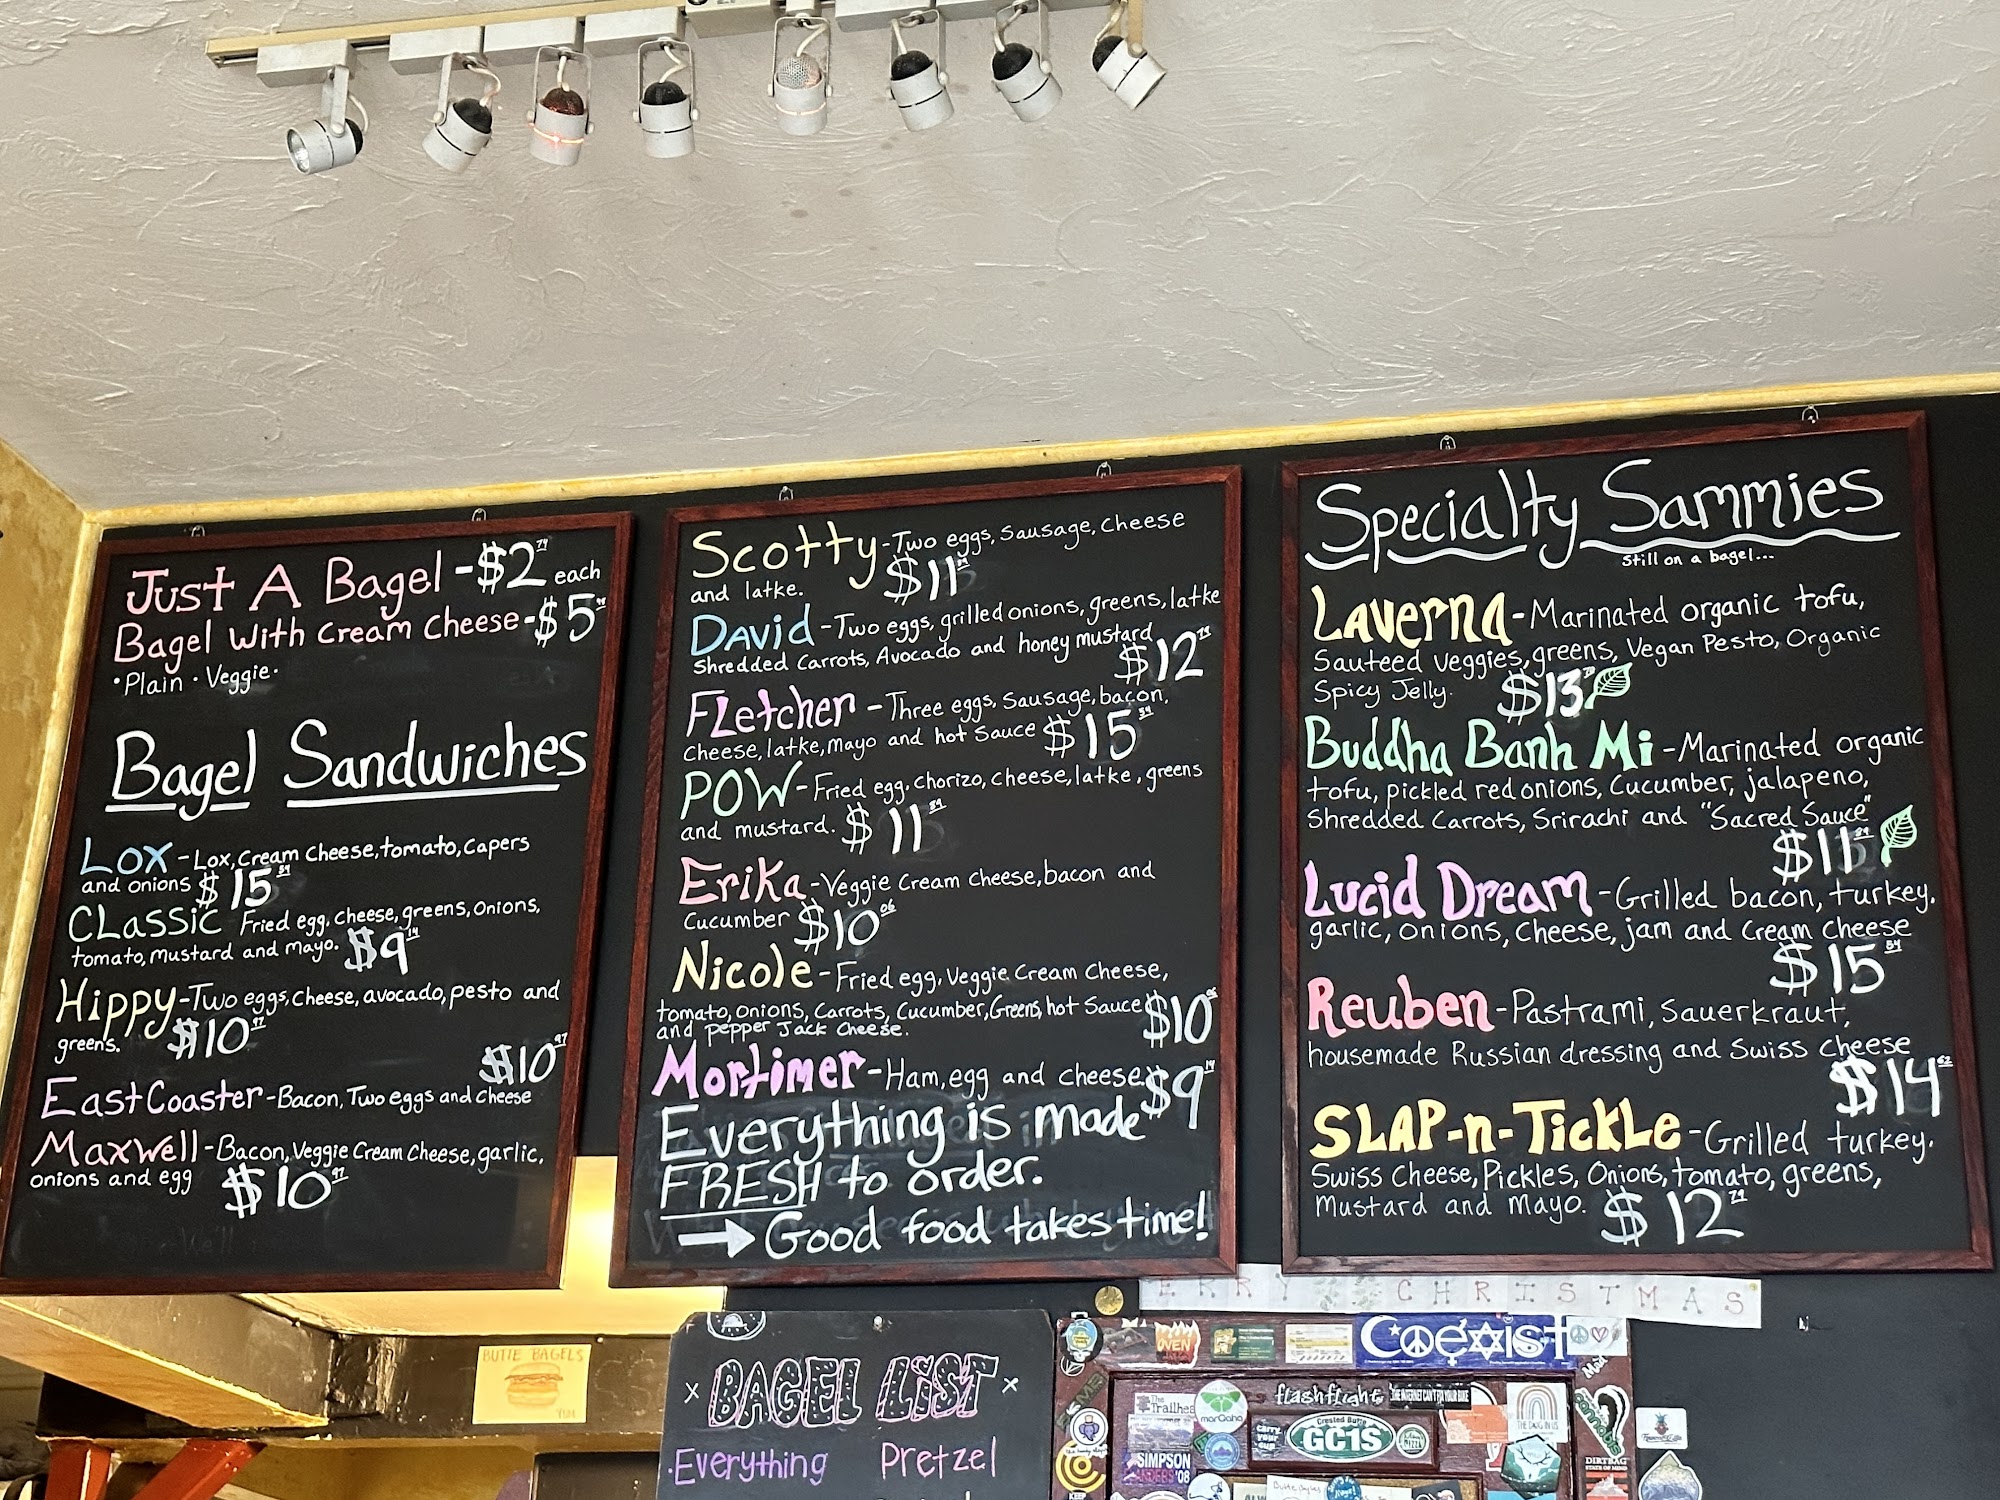 Just A Bagel - $2.79 each
Bagel with cream cheese - $5.48
• Plain • Veggie •
Bagel Sandwiches
Lox - Lox, cream cheese, tomato, capers
and onions $15.54
Classic Fried egg, cheese, greens, onions,
tomato, mustard and mayo. $9.14
Hippy - Two eggs, cheese, avocado, pesto and
greens. $10.97
$10.97
EastCoaster - Bacon, Two eggs and cheese
Maxwell - Bacon, Veggie Cream Cheese, garlic,
onions and egg $10.97
Scotty - Two eggs, sausage, cheese
and latke. $11
David - Two eggs, grilled onions, greens, latke
shredded carrots, Avocado and honey mustard
$12.79
Fletcher - Three eggs, sausage, bacon,
cheese, latke, mayo and hot sauce $15.54
POW - Fried egg, chorizo, cheese, latke, greens
and mustard. $11.89
Erika - Veggie cream cheese, bacon and
cucumber $10.06
Nicole - Fried egg, Veggie cream cheese,
tomato, onions, carrots, cucumber, Greens, hot sauce $10.06
and pepper Jack cheese.
Mortimer - Ham, egg and cheese $9.14
Everything is made
FRESH to order.
→ Good food takes time!
Specialty Sammies
Still on a bagel...
Laverna - Marinated organic tofu,
Sauteed veggies, greens, Vegan Pesto, Organic
Spicy Jelly. $13
Buddha Banh Mi - Marinated organic
tofu, pickled red onions, cucumber, jalapeno,
shredded carrots, Srirachi and "Sacred Sauce"
$11.89
Lucid Dream - Grilled bacon, turkey,
garlic, onions, cheese, jam and cream cheese
$15.54
Reuben - Pastrami, sauerkraut,
housemade Russian dressing and Swiss cheese
$14.62
SLAP-n-TICKLE - Grilled turkey,
Swiss cheese, Pickles, Onions, tomato, greens,
Mustard and Mayo. $12.79
ERRY CHRISTMAS
BUTTE BAGELS
YUM
x BAGEL LiST x
Everything Pretzel
OVEN
COEXIST
The Trailhead
marGaha
flashflight
THE INTERNET CAN'T FIX YOUR BIKE
THE DOG IN US
Carry your cup
Crested Butte
GC1S
SIMPSON
'08
cannabis
DIRTBAG
STATE OF MIND
KEEP